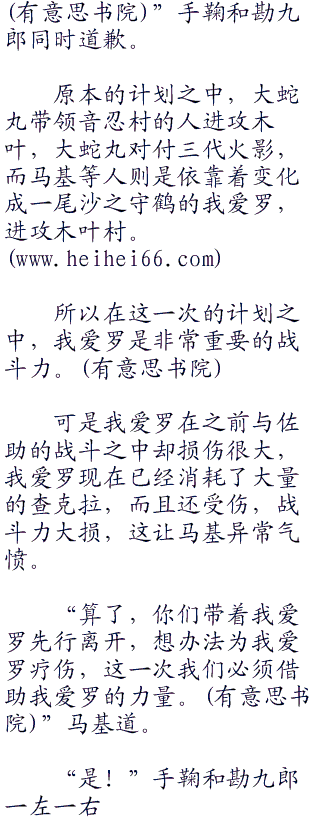 (有意思书院)”手鞠和勘九
郎同时道歉。
原本的计划之中，大蛇
丸带领音忍村的人进攻木
叶，大蛇丸对付三代火影，
而马基等人则是依靠着变化
成一尾沙之守鹤的我爱罗，
进攻木叶村。
(www.heihei66.com)
所以在这一次的计划之
中，我爱罗是非常重要的战
斗力。(有意思书院)
可是我爱罗在之前与佐
助的战斗之中却损伤很大，
我爱罗现在已经消耗了大量
的查克拉，而且还受伤，战
斗力大损，这让马基异常气
愤。
“算了，你们带着我爱
罗先行离开，想办法为我爱
罗疗伤，这一次我们必须借
助我爱罗的力量。(有意思书
院)”马基道。
“是！”手鞠和勘九郎
一左一右